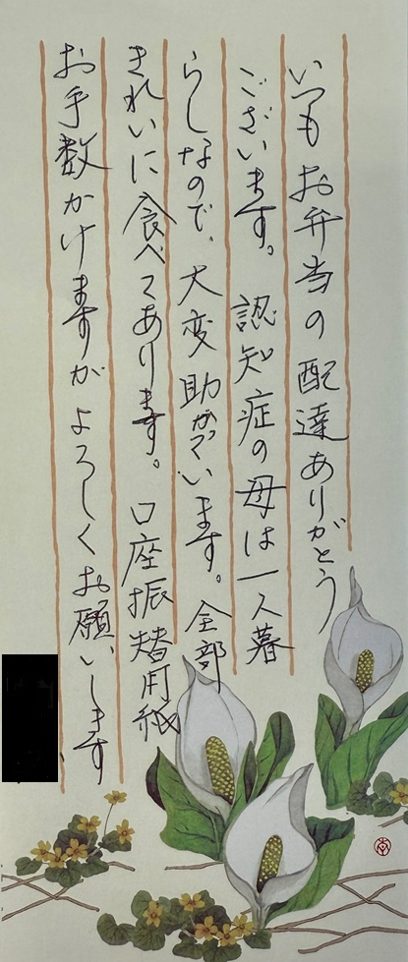 いつもお弁当の配達ありがとう
ございます。認知症の母は一人暮
らしなので、大変助かっています。全部
きれいに食べてあります。口座振替用紙
お手数かけますがよろしくお願いします